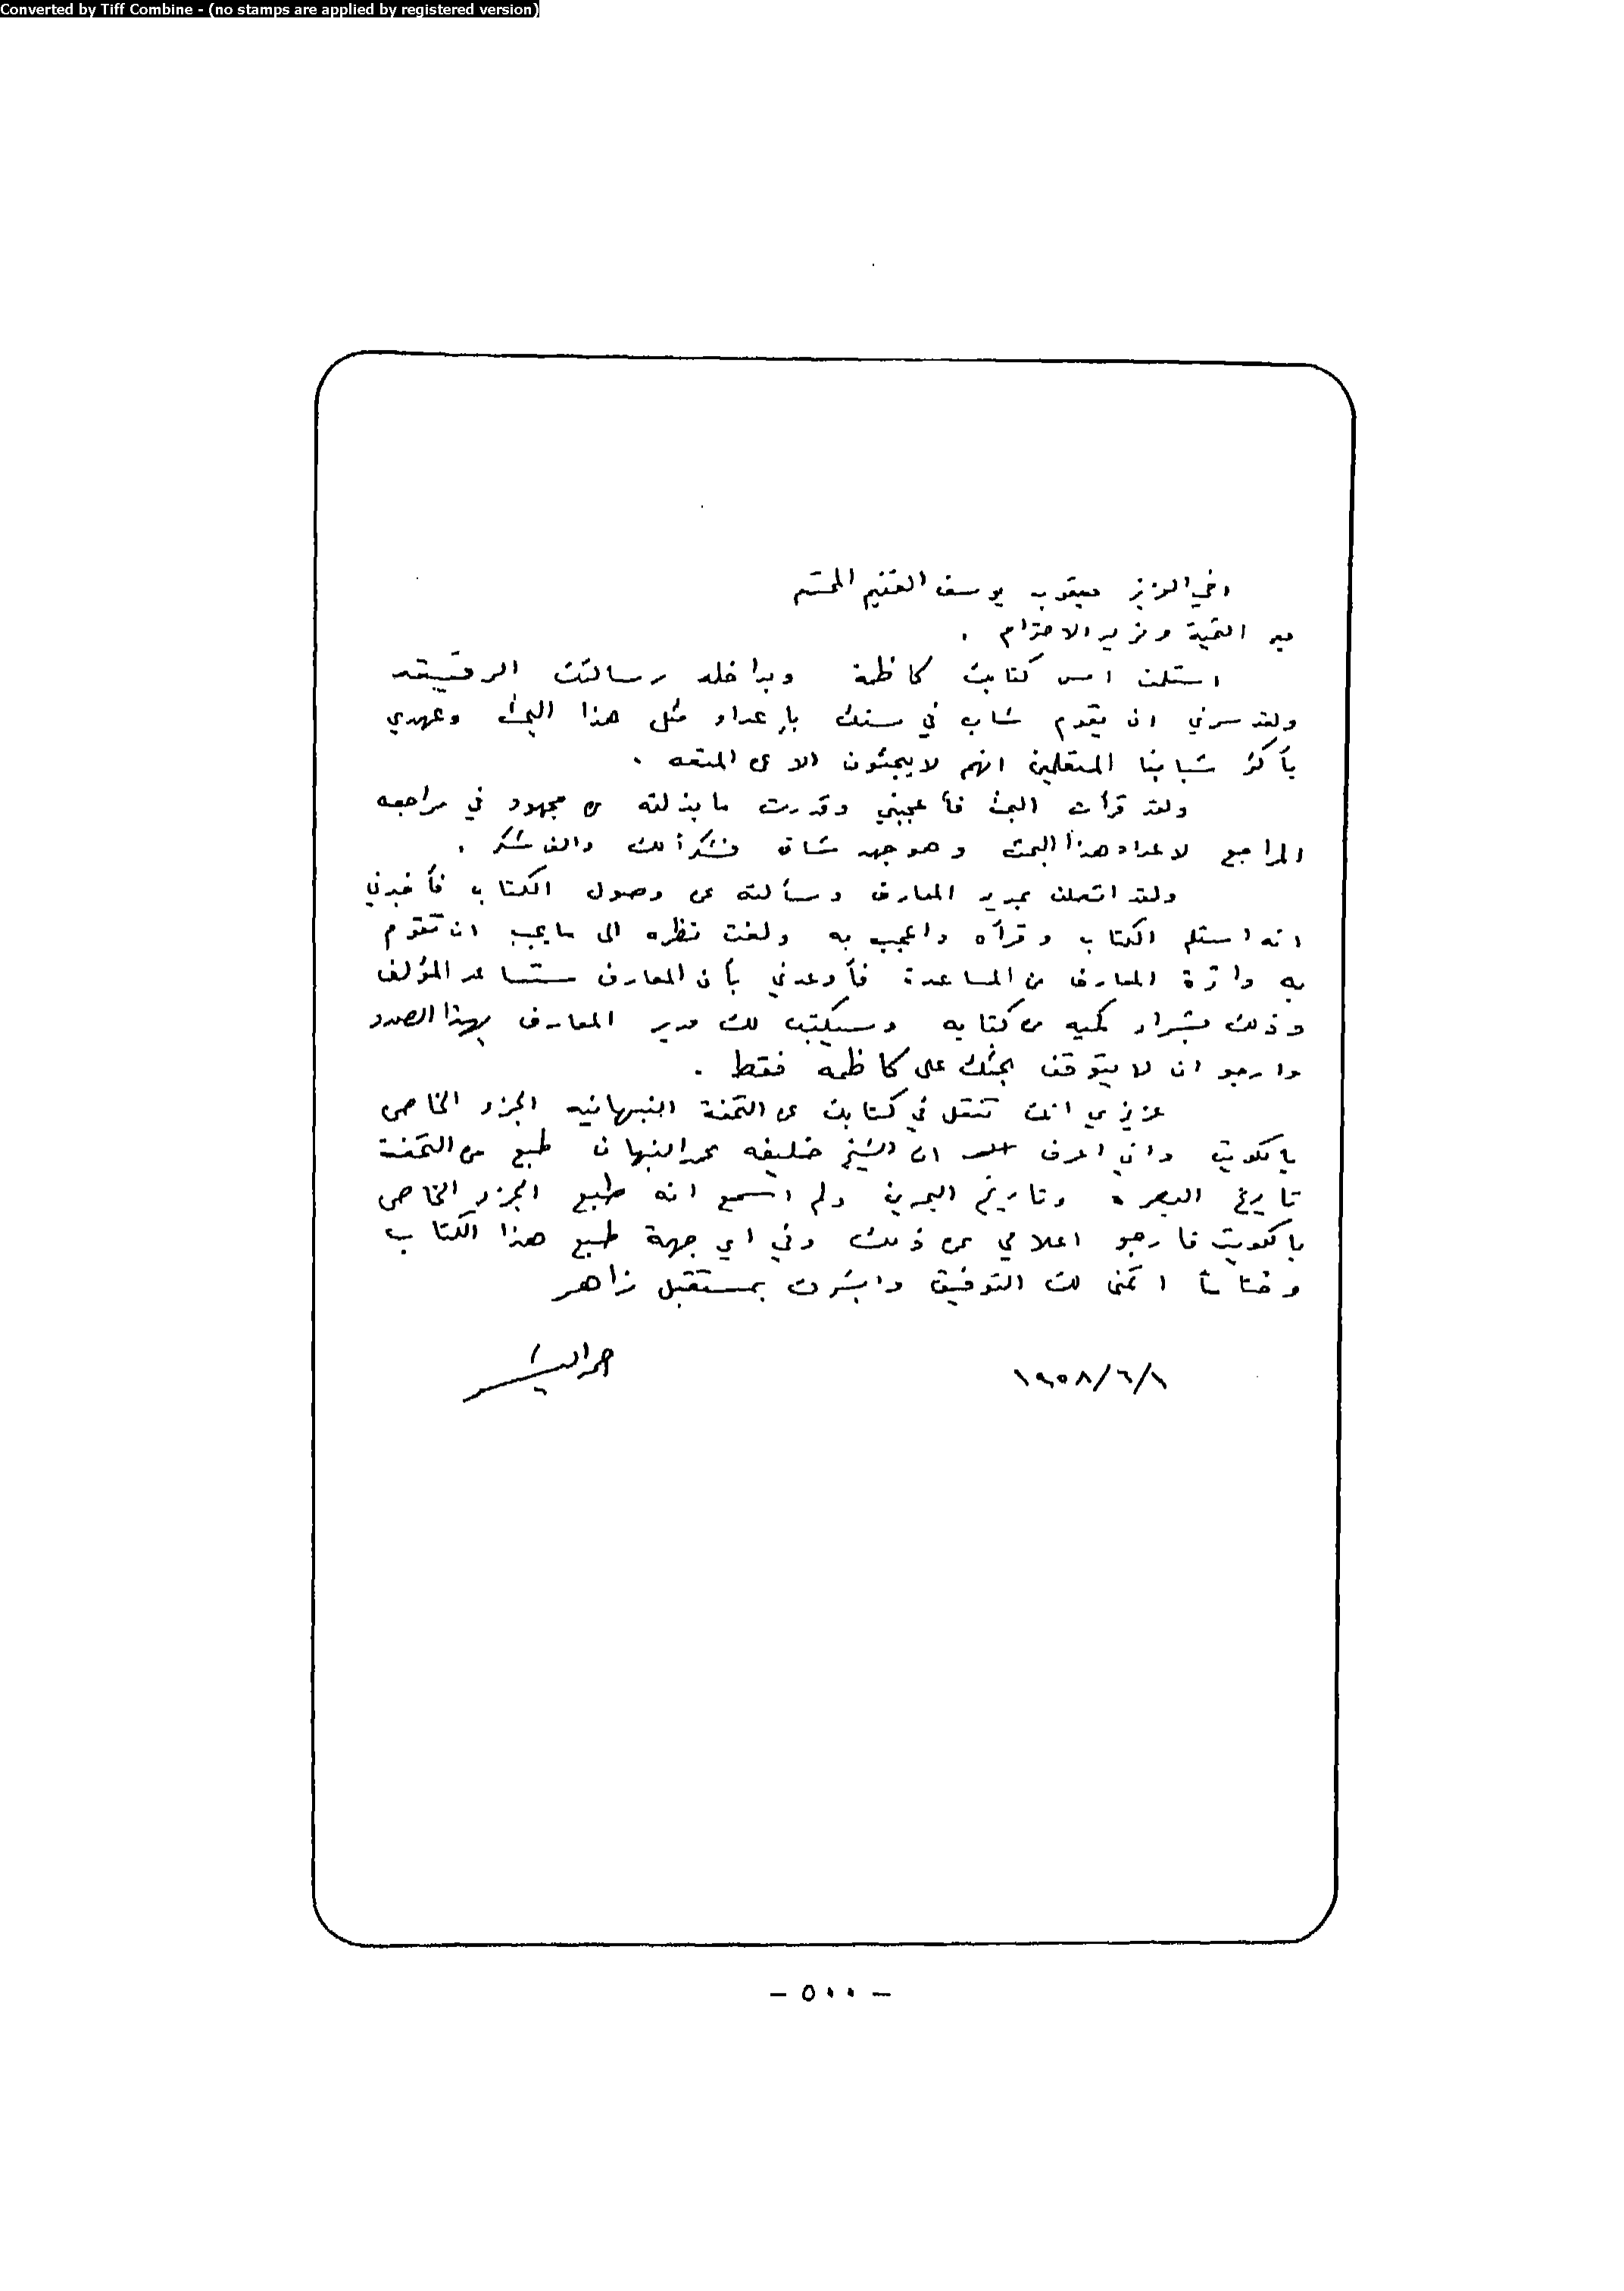 Converted by Tiff Combine - (no stamps are applied by registered version)
اخي العزيز يعقوب يوسف الغنيم المحترم
بعد التحية ومزيد الاحترام .
استلمت امس كتابك كاظمة وبداخله رسالتك الرقيقه
ولقد سرني ان يقوم شاب في سنك بإعداد مثل هذا البحث وعهدي
بأكثر شبابنا المتعلمين انهم لا يبحثون الا عن المتعه .
ولقد قرأت البحث فأعجبني وقدرت ما بذلته من مجهود في مراجعه
المراجع لاعداد هذا البحث وهو جهد شاق فشكرأ لك والف شكر .
ولقد اتصلت بمدير المعارف وسألته عن وصول الكتاب فأخبرني
انه استلم الكتاب وقرأه واعجب به ولفت نظره الى ما يجب ان تقوم
به دائرة المعارف من المساعدة فأوعدني بأن المعارف ستساعد المؤلف
وذلك بشراء كميه من كتابه وسيكتب لك مدير المعارف بهذا الصدد
وارجو ان لا يتوقف بحثك على كاظمه فقط .
عزيزي انك تنقل في كتابك عن التحفة النبهانيه الجزء الخاص
بالكويت واني اعرف ان الشيخ خليفه محمد النبهان طبع من التحفة
تاريخ البصره وتاريخ البحرين ولم اسمع انه طبع الجزء الخاص
بالكويت فارجو اعلامي عن ذلك وفي اي جهة طبع هذا الكتاب
وختاماً اتمنى لك التوفيق وابشرك بمستقبل زاهر
١٩٥٨/٦/١
- ٥٠٠ -